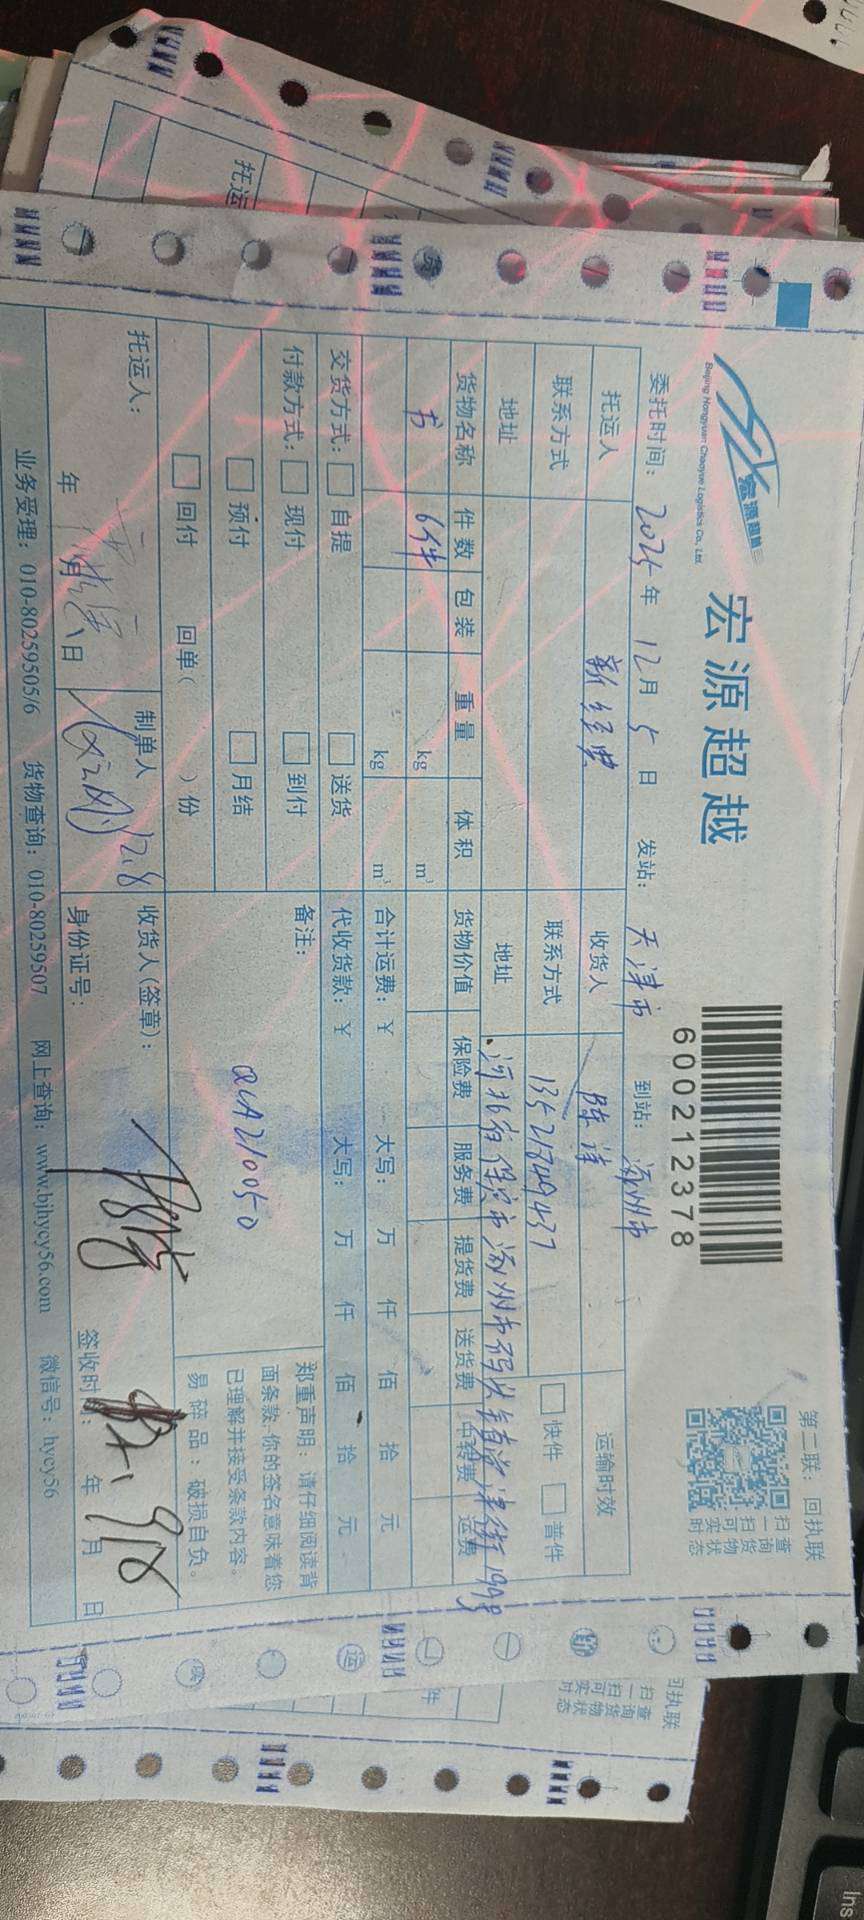 宏源超越
Beijing Hongyuan Chaoyue Logistics Co., Ltd.
宏源超越
600212378
第二联：回执联
扫一扫可实时
查询货物状态
委托时间： 2025 年 12 月 5 日 发站： 天津市 到站： 涿州市
托运人 新经典 收货人 陈 运输时效
联系方式 联系方式 13521749437 快件 普件
地址 地址 河北省保定市涿州市码头镇 街199号
货物名称 件数 包装 重量 体积 货物价值 保险费 服务费 提货费 送货费 中转费 运费
书 6件 kg m³
kg m³ 合计运费：￥ 大写： 万 仟 佰 拾 元
交货方式： 自提 送货 代收货款：￥ 大写： 万 仟 佰 拾 元
付款方式： 现付 到付 备注：
预付 月结 QCA210050
回付 回单（ ）份
郑重声明：请仔细阅读背
面条款,你的签名意味着您
已理解并接受条款内容。
易碎品：破损自负。
托运人： 制单人 12.8 收货人(签章)：
年 月 日 身份证号： 签收时间： 年 月 日
业务受理：010-80259505/6 货物查询：010-80259507 网上查询：www.bjhycy56.com 微信号：hycy56
托运
回执联
扫一扫可实时
查询货物状态
件
Ins